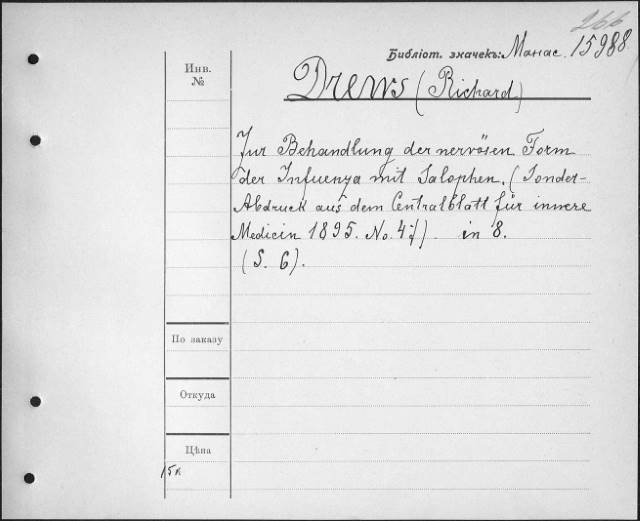 266
Библіот. значекъ: Манас. 15988
Инв.
№
Drews (Richard)
Zur Behandlung der nervösen Form
der Infuenza mit Salophen. (Sonder-
Abdruck aus dem Centralblatt für innere
Medicin 1895. No. 47) in 8.
(S. 6).
По заказу
Откуда
Цѣна
15к